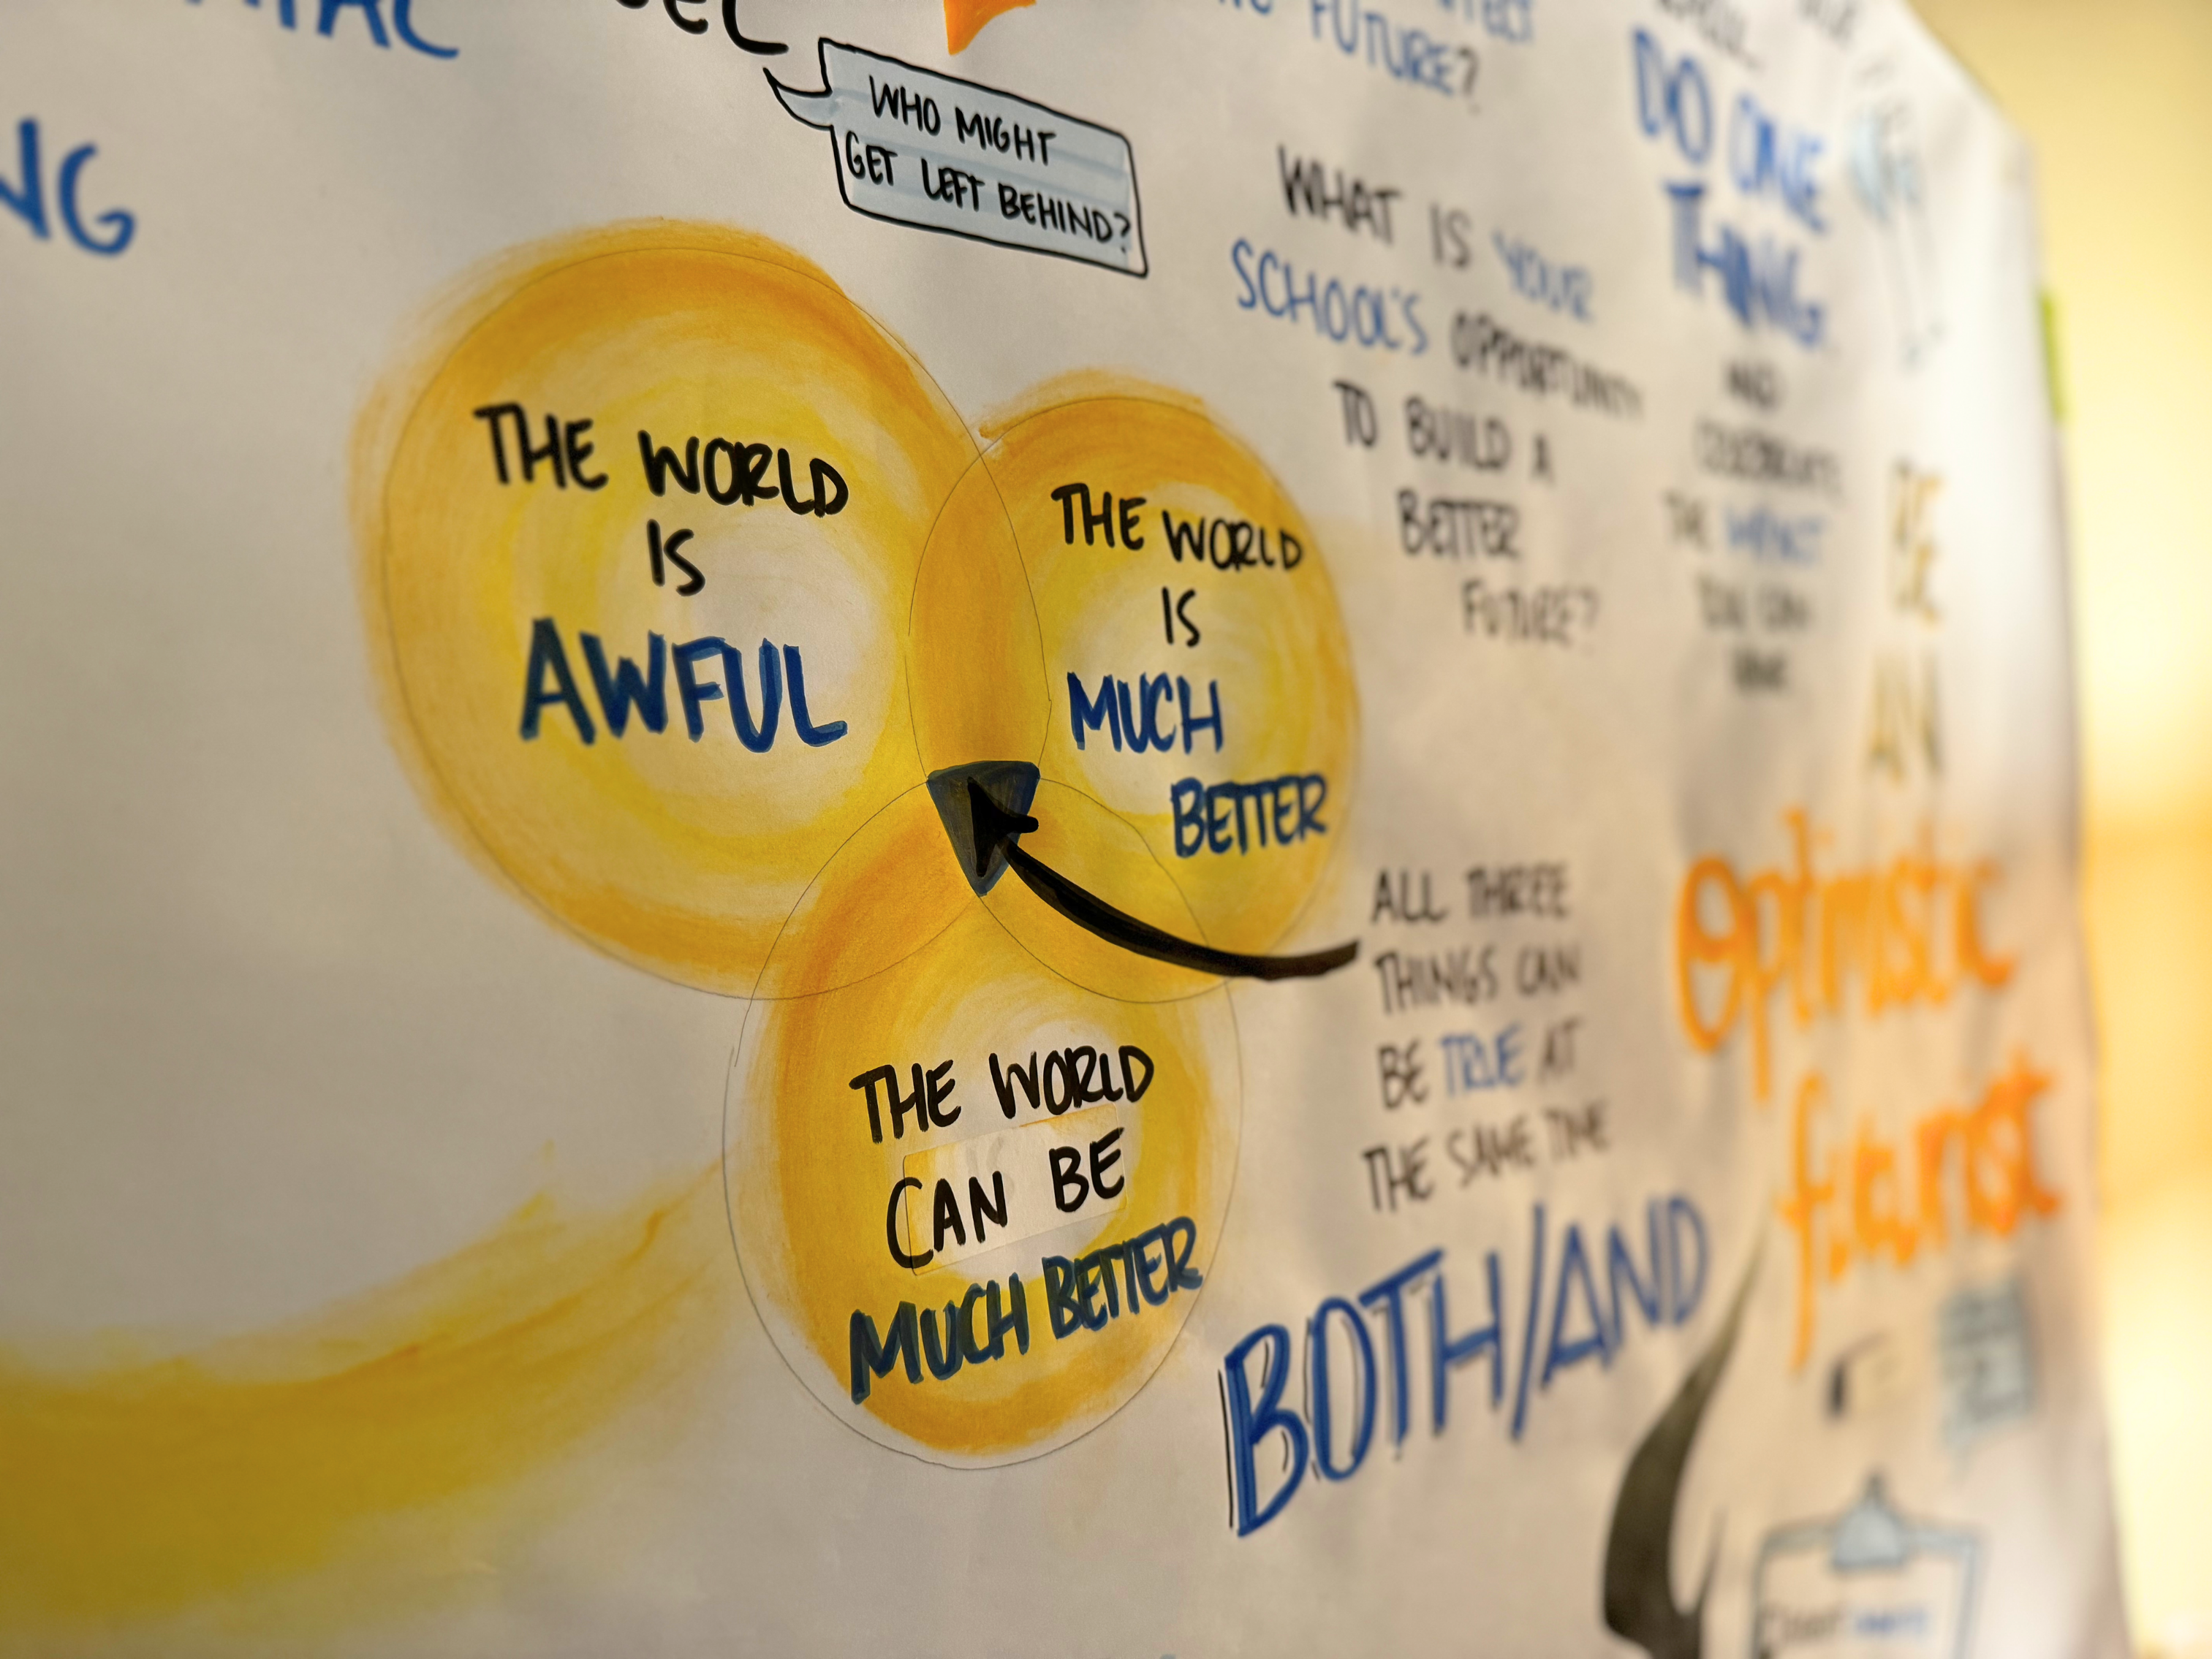 WHO MIGHT
GET LEFT BEHIND?
THE WORLD
IS
AWFUL
THE WORLD
IS
MUCH
BETTER
THE WORLD
CAN BE
MUCH BETTER
FUTURE?
WHAT IS YOUR
SCHOOL'S OPPORTUNITY
TO BUILD A
BETTER
FUTURE?
ALL THREE
THINGS CAN
BE TRUE AT
THE SAME TIME
BOTH/AND
DO ONE
THING
AND
CELEBRATE
THE IMPACT
BE
AN
Optimistic
futurist